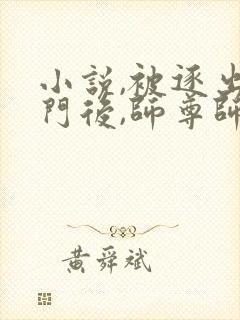 小說,被逐出
門後,師尊師
黃舜斌